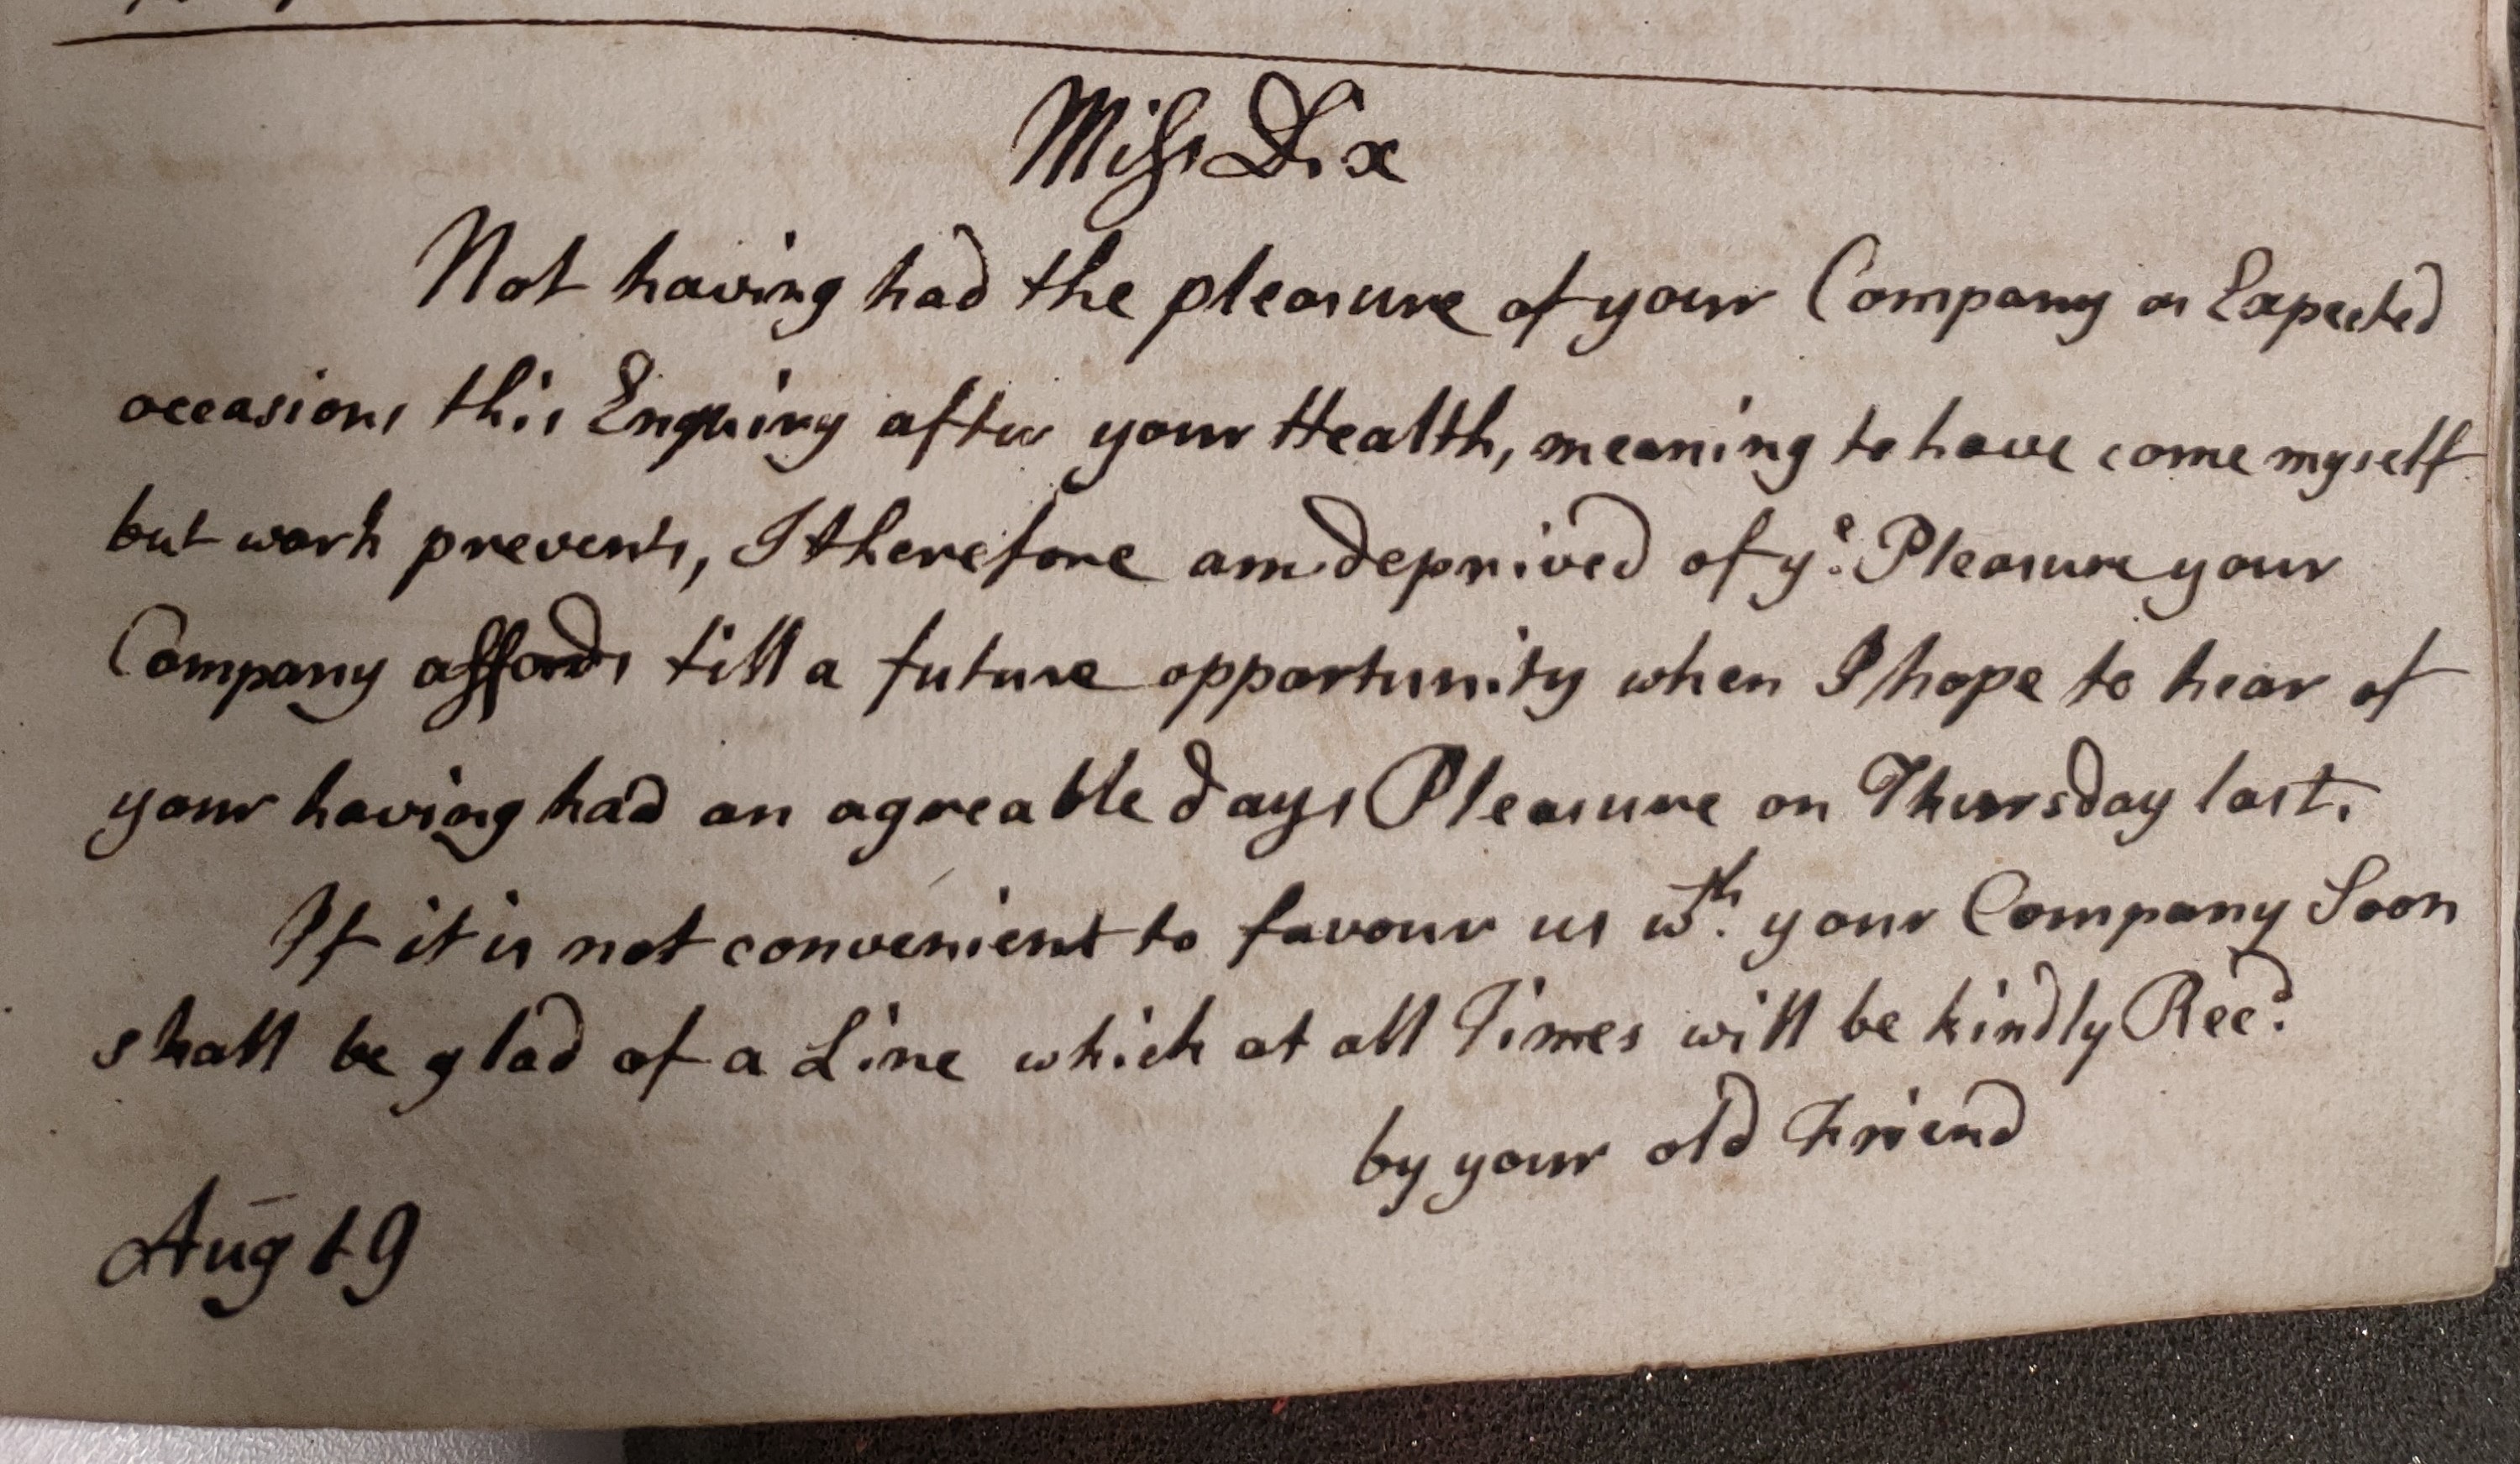 Miss Dix
Not having had the pleasure of your Company as Expected
occasions this Enquiry after your Health, meaning to have come myself
but work prevents, I therefore am deprived of yᵉ. Pleasure your
Company affords till a future opportunity when I hope to hear of
your having had an agreable days Pleasure on Thursday last.
If it is not convenient to favour us wᵗʰ. your Company Soon
shall be glad of a Line which at all Times will be kindly Recᵈ.
by your old Friend
Aug 19